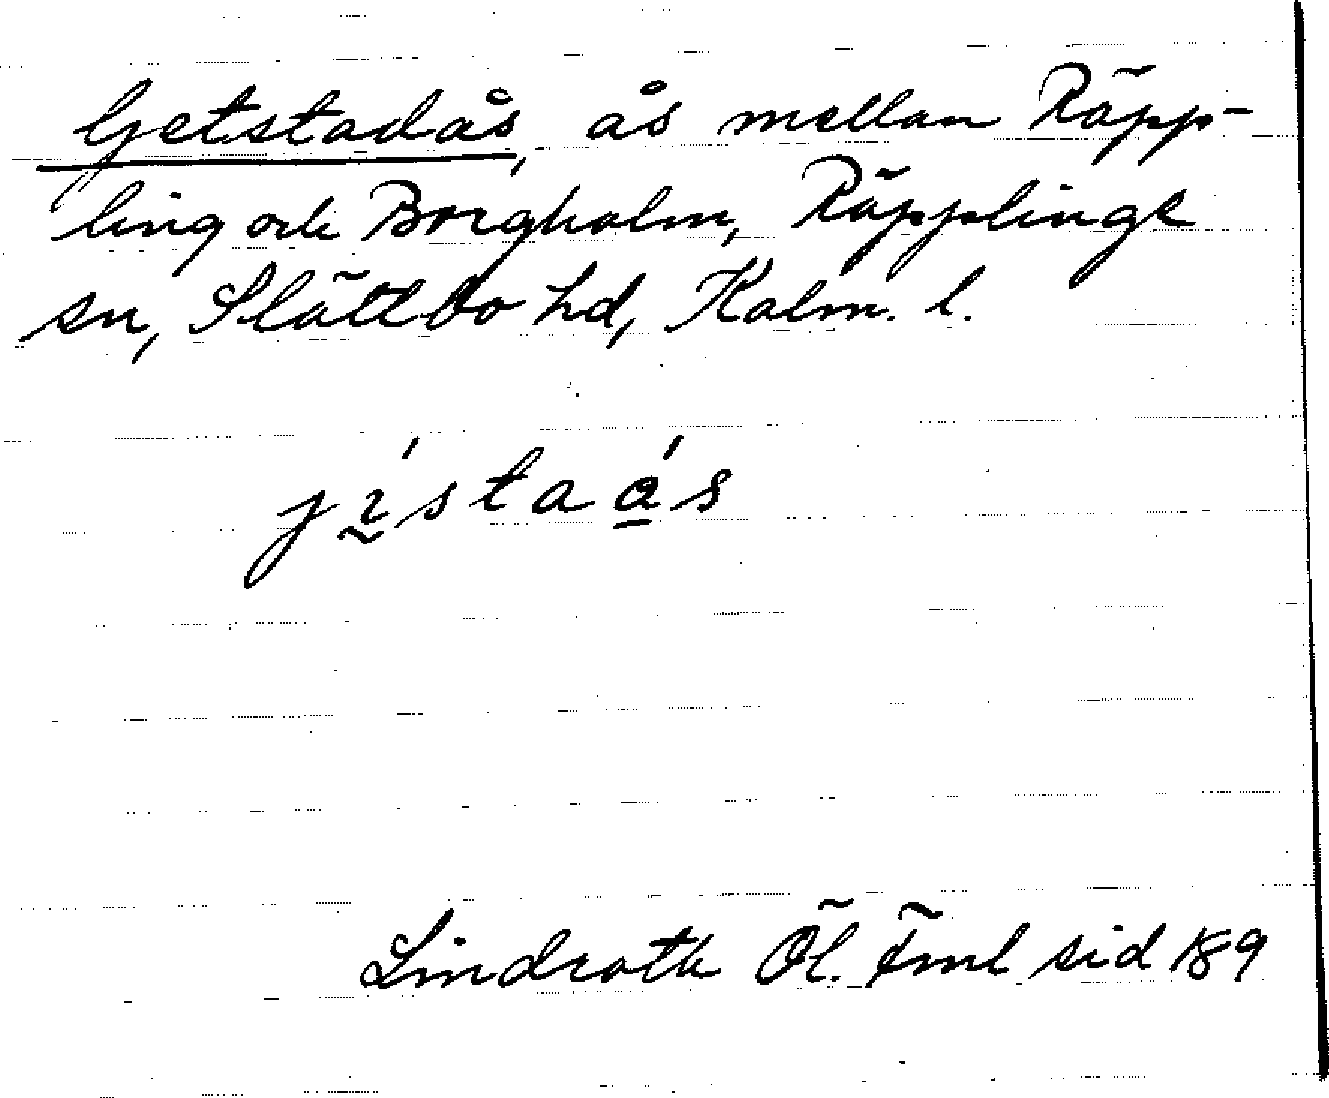 Getstadås, ås mellan Räpp-
ling och Borgholm, Räpplinge
sn, Slättbo hd, Kalm. l.
Lindroth Öl. sid 189